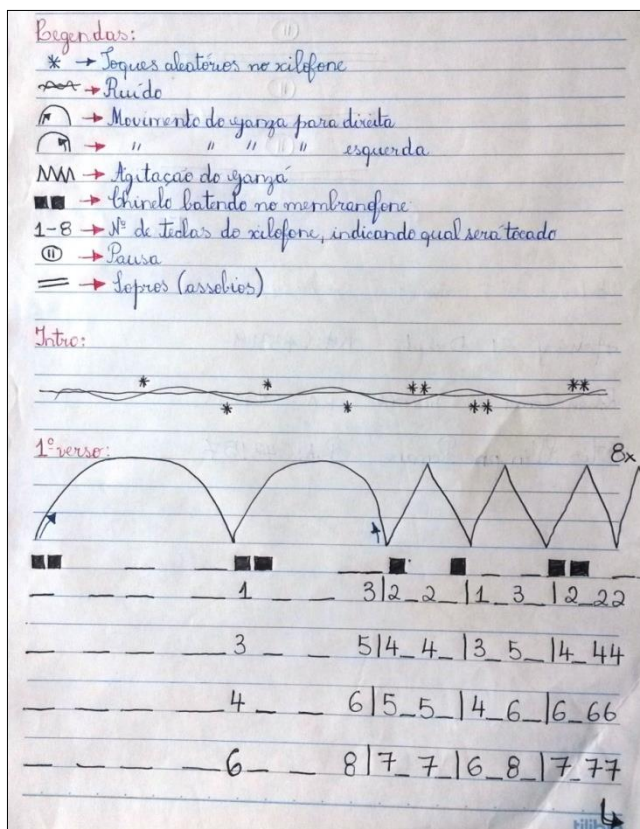 Legendas:
* → Toques aleatórios no xilofone
→ Ruído
→ Movimento do ganza para direita
→ " " " " esquerda
→ Agitação do ganzá
■■ → Chinelo batendo no membranofone
1-8 → Nº de teclas do xilofone, indicando qual será tocado
⏸ → Pausa
= → Sopros (assobios)
Intro:
* * ** **
* * **
1º verso:
8x
■■ _ _ ■■ _ ■ ■ _ _ ■■ _
_ _ _ _ _ 1 _ _ 3|2_2_|1_3_|2_22
_ _ _ _ _ 3 _ _ 5|4_4_|3_5_|4_44
_ _ _ _ _ 4 _ _ 6|5_5_|4_6_|6_66
_ _ _ _ _ 6 _ _ 8|7_7_|6_8_|7_77